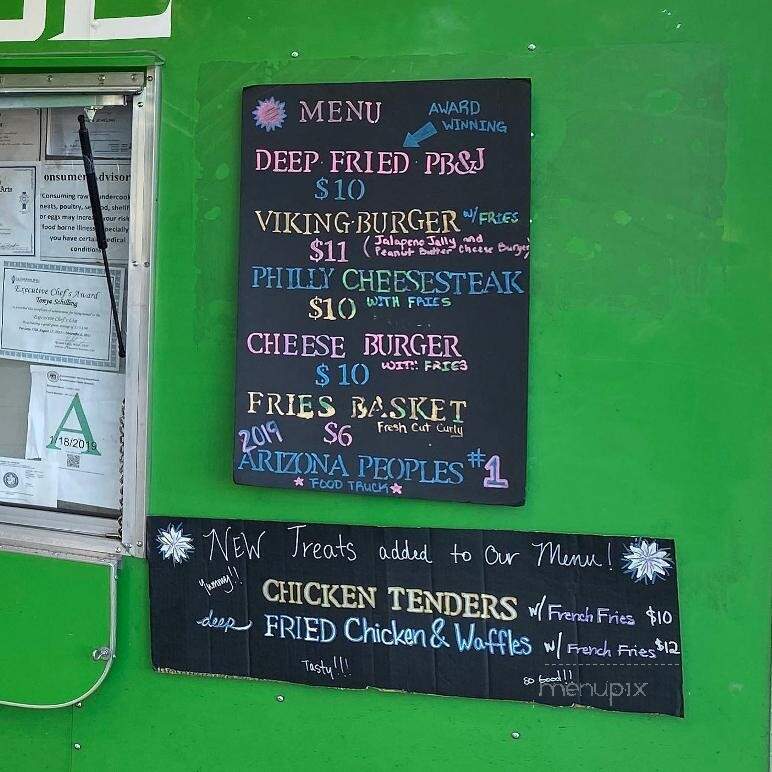 MENU
AWARD
WINNING
DEEP FRIED PB&J
$10
VIKING BURGER W/ FRIES
$11 (Jalapeno Jally and
Peanut Butter Cheese Burger)
PHILLY CHEESESTEAK
$10 WITH FRIES
CHEESE BURGER
$10 WITH FRIES
FRIES BASKET
$6 Fresh Cut Curly
2019
ARIZONA PEOPLES #1
FOOD TRUCK
NEW Treats added to our Menu!
Yummy!!
CHICKEN TENDERS w/ French Fries $10
deep FRIED Chicken & Waffles w/ French Fries $12
Tasty!!!
so Good!!
menupix
onsumer Advisor
Consuming raw
undercook
meats, poultry, seafood, shellf
or eggs may increase your risk
food borne illness especially
you have certain medical
condition
Executive Chef's Award
Tonya Schilling
A
1/18/2019